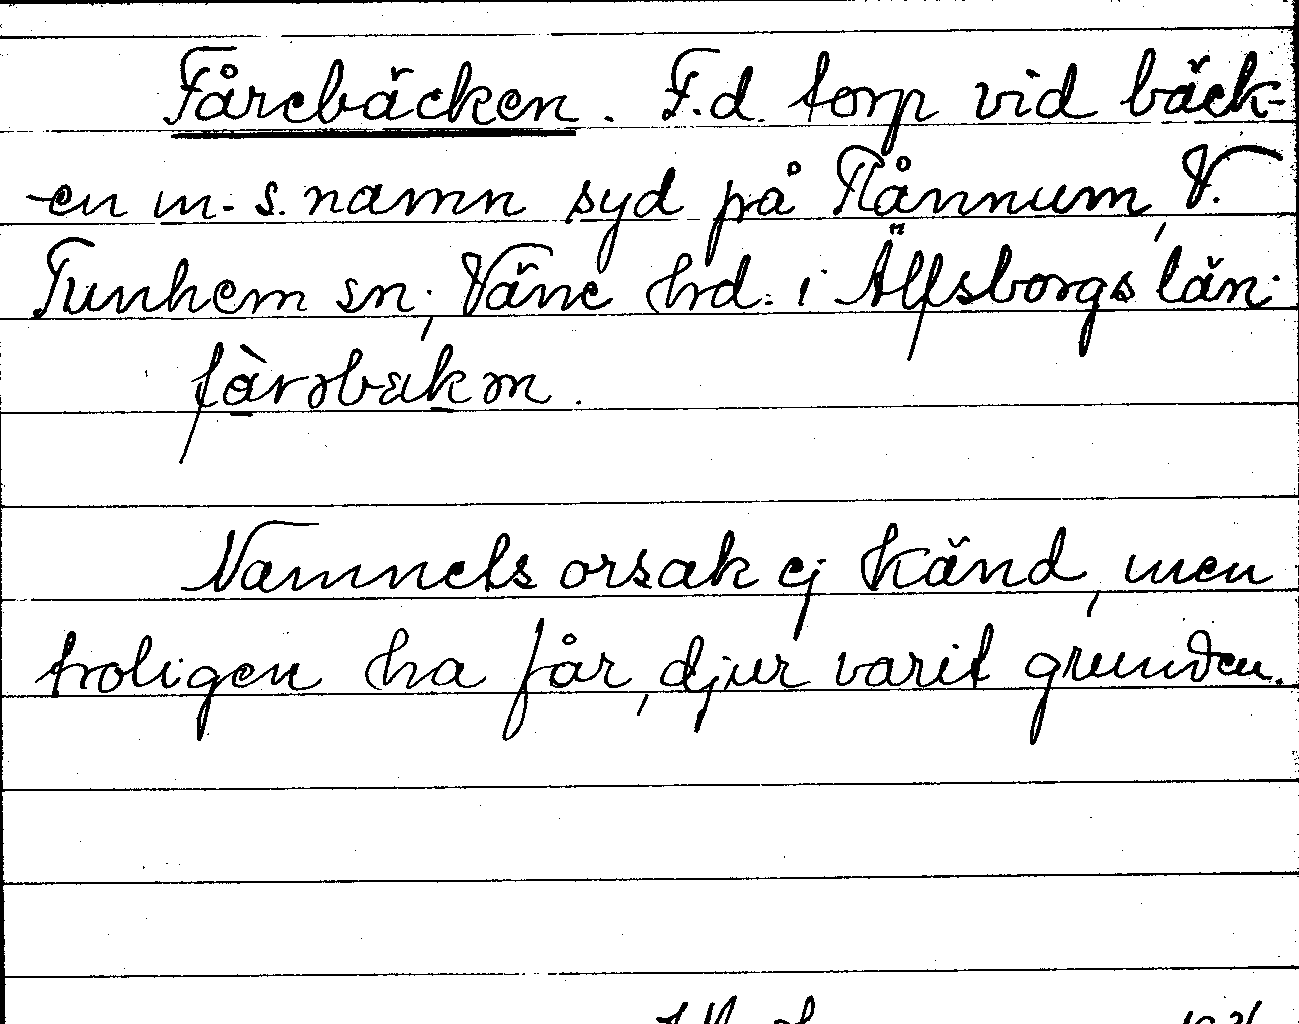 Fårebäcken. F.d. torp vid bäck-
en m. s. namn syd på Rånnum, V.
Tunhem sn, Väne hd. i Älfsborgs län.
Namnets orsak ej känd, men
troligen ha får, djur varit grunden.